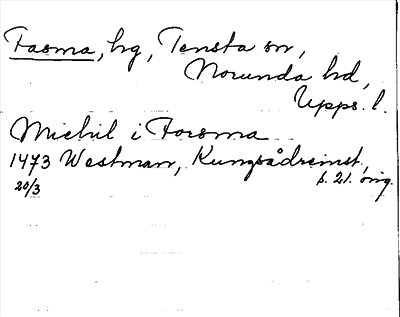 Fasma, hg, Tensta sn,
Norunda hd,
Upps. l.
Michil i Forsma
1473 Westman, Kungsådreinst,
20/3 s. 21. orig.